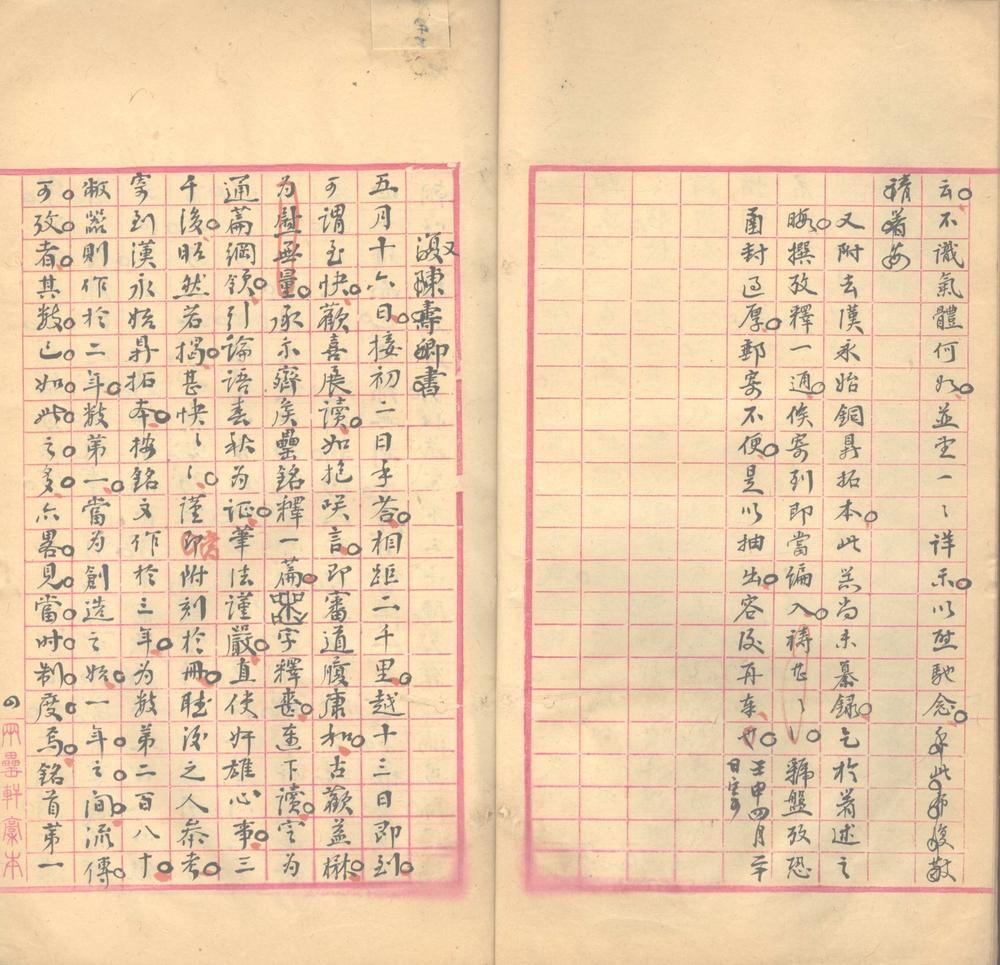 云不識氣體何如並望一〻詳示以慰馳念手此布復敬
請著安
又附去漢永始銅鼎拓本此器尚未纂錄乞於著述之
暇撰攷釋一通俟寄到即當編入禱甚〻〻號盤攷恐
函封過厚郵寄不便是以抽出容後再奉也壬申四月
復陳壽卿書
五月十六日接初二日手荅相距二千里越十三日即到
可謂至快歡喜展讀如挹咲言即審道履康和古歡益楙
為慰無量承示齊矦罍銘釋一篇字釋喪連下讀定為
通篇綱領引論語春秋為证筆法謹嚴直使奸雄心事三
千後昭然若揭甚快〻〻謹即附刻於冊聽後之人叅考
寄到漢永始鼎拓本按銘文作於三年為數第二百八十
敝器則作於二年數第一當為創造之始一年之间流傳
可攷者其数已如此之多亦畧見當时制度焉銘首第一
兩罍軒稾本